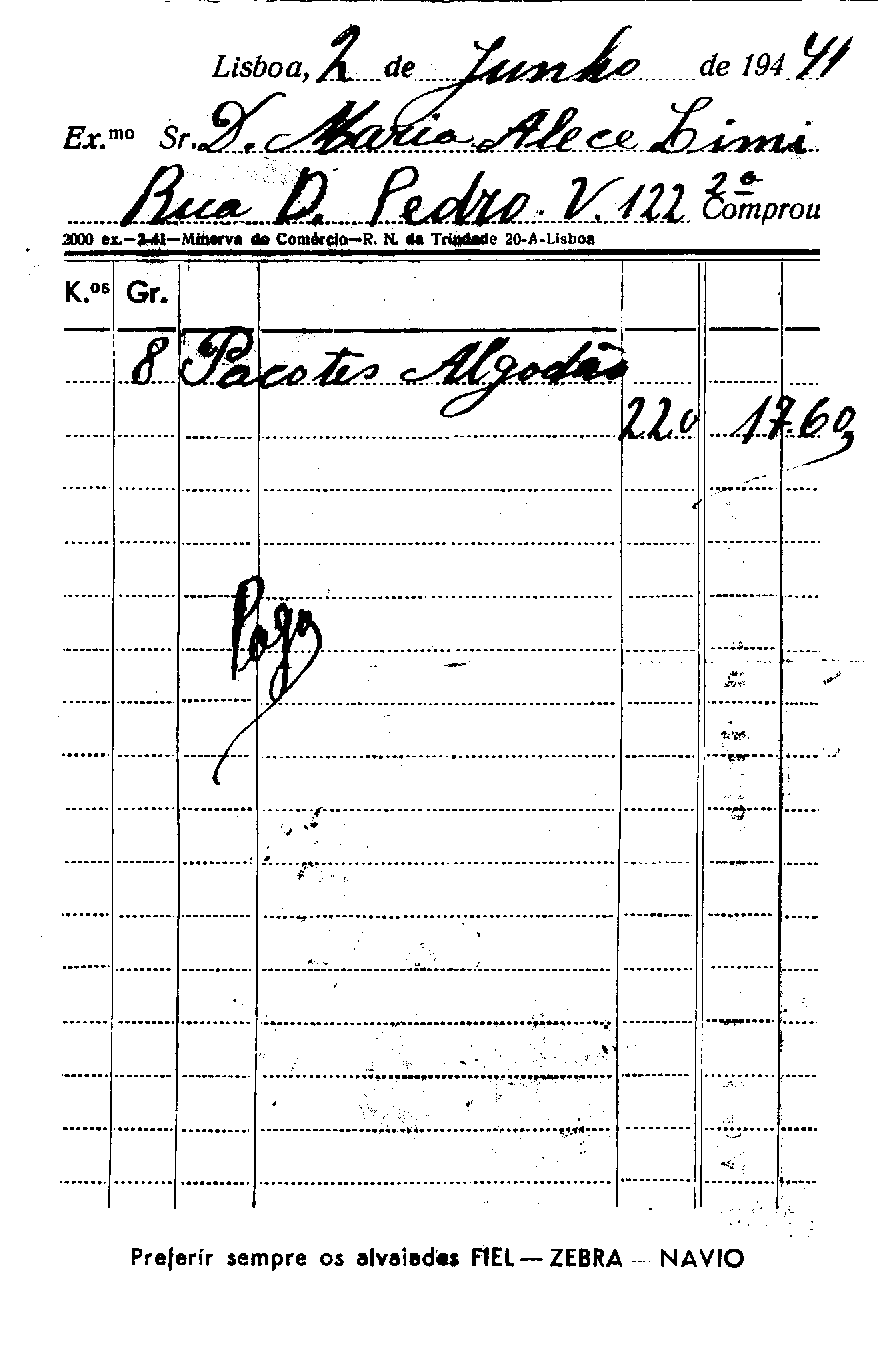 Lisboa, 2 de Junho de 194 41
Ex.mo Sr. D. Maria Alece Limi
Rua D. Pedro. V. 122 2º Comprou
2000 ex.—2-41—Minerva do Comércio—R. N. da Trindade 20-A-Lisboa
K.os Gr.
8 Pacotes Algodão
220 17.60
Pago
Preferir sempre os alvaiades FIEL — ZEBRA — NAVIO